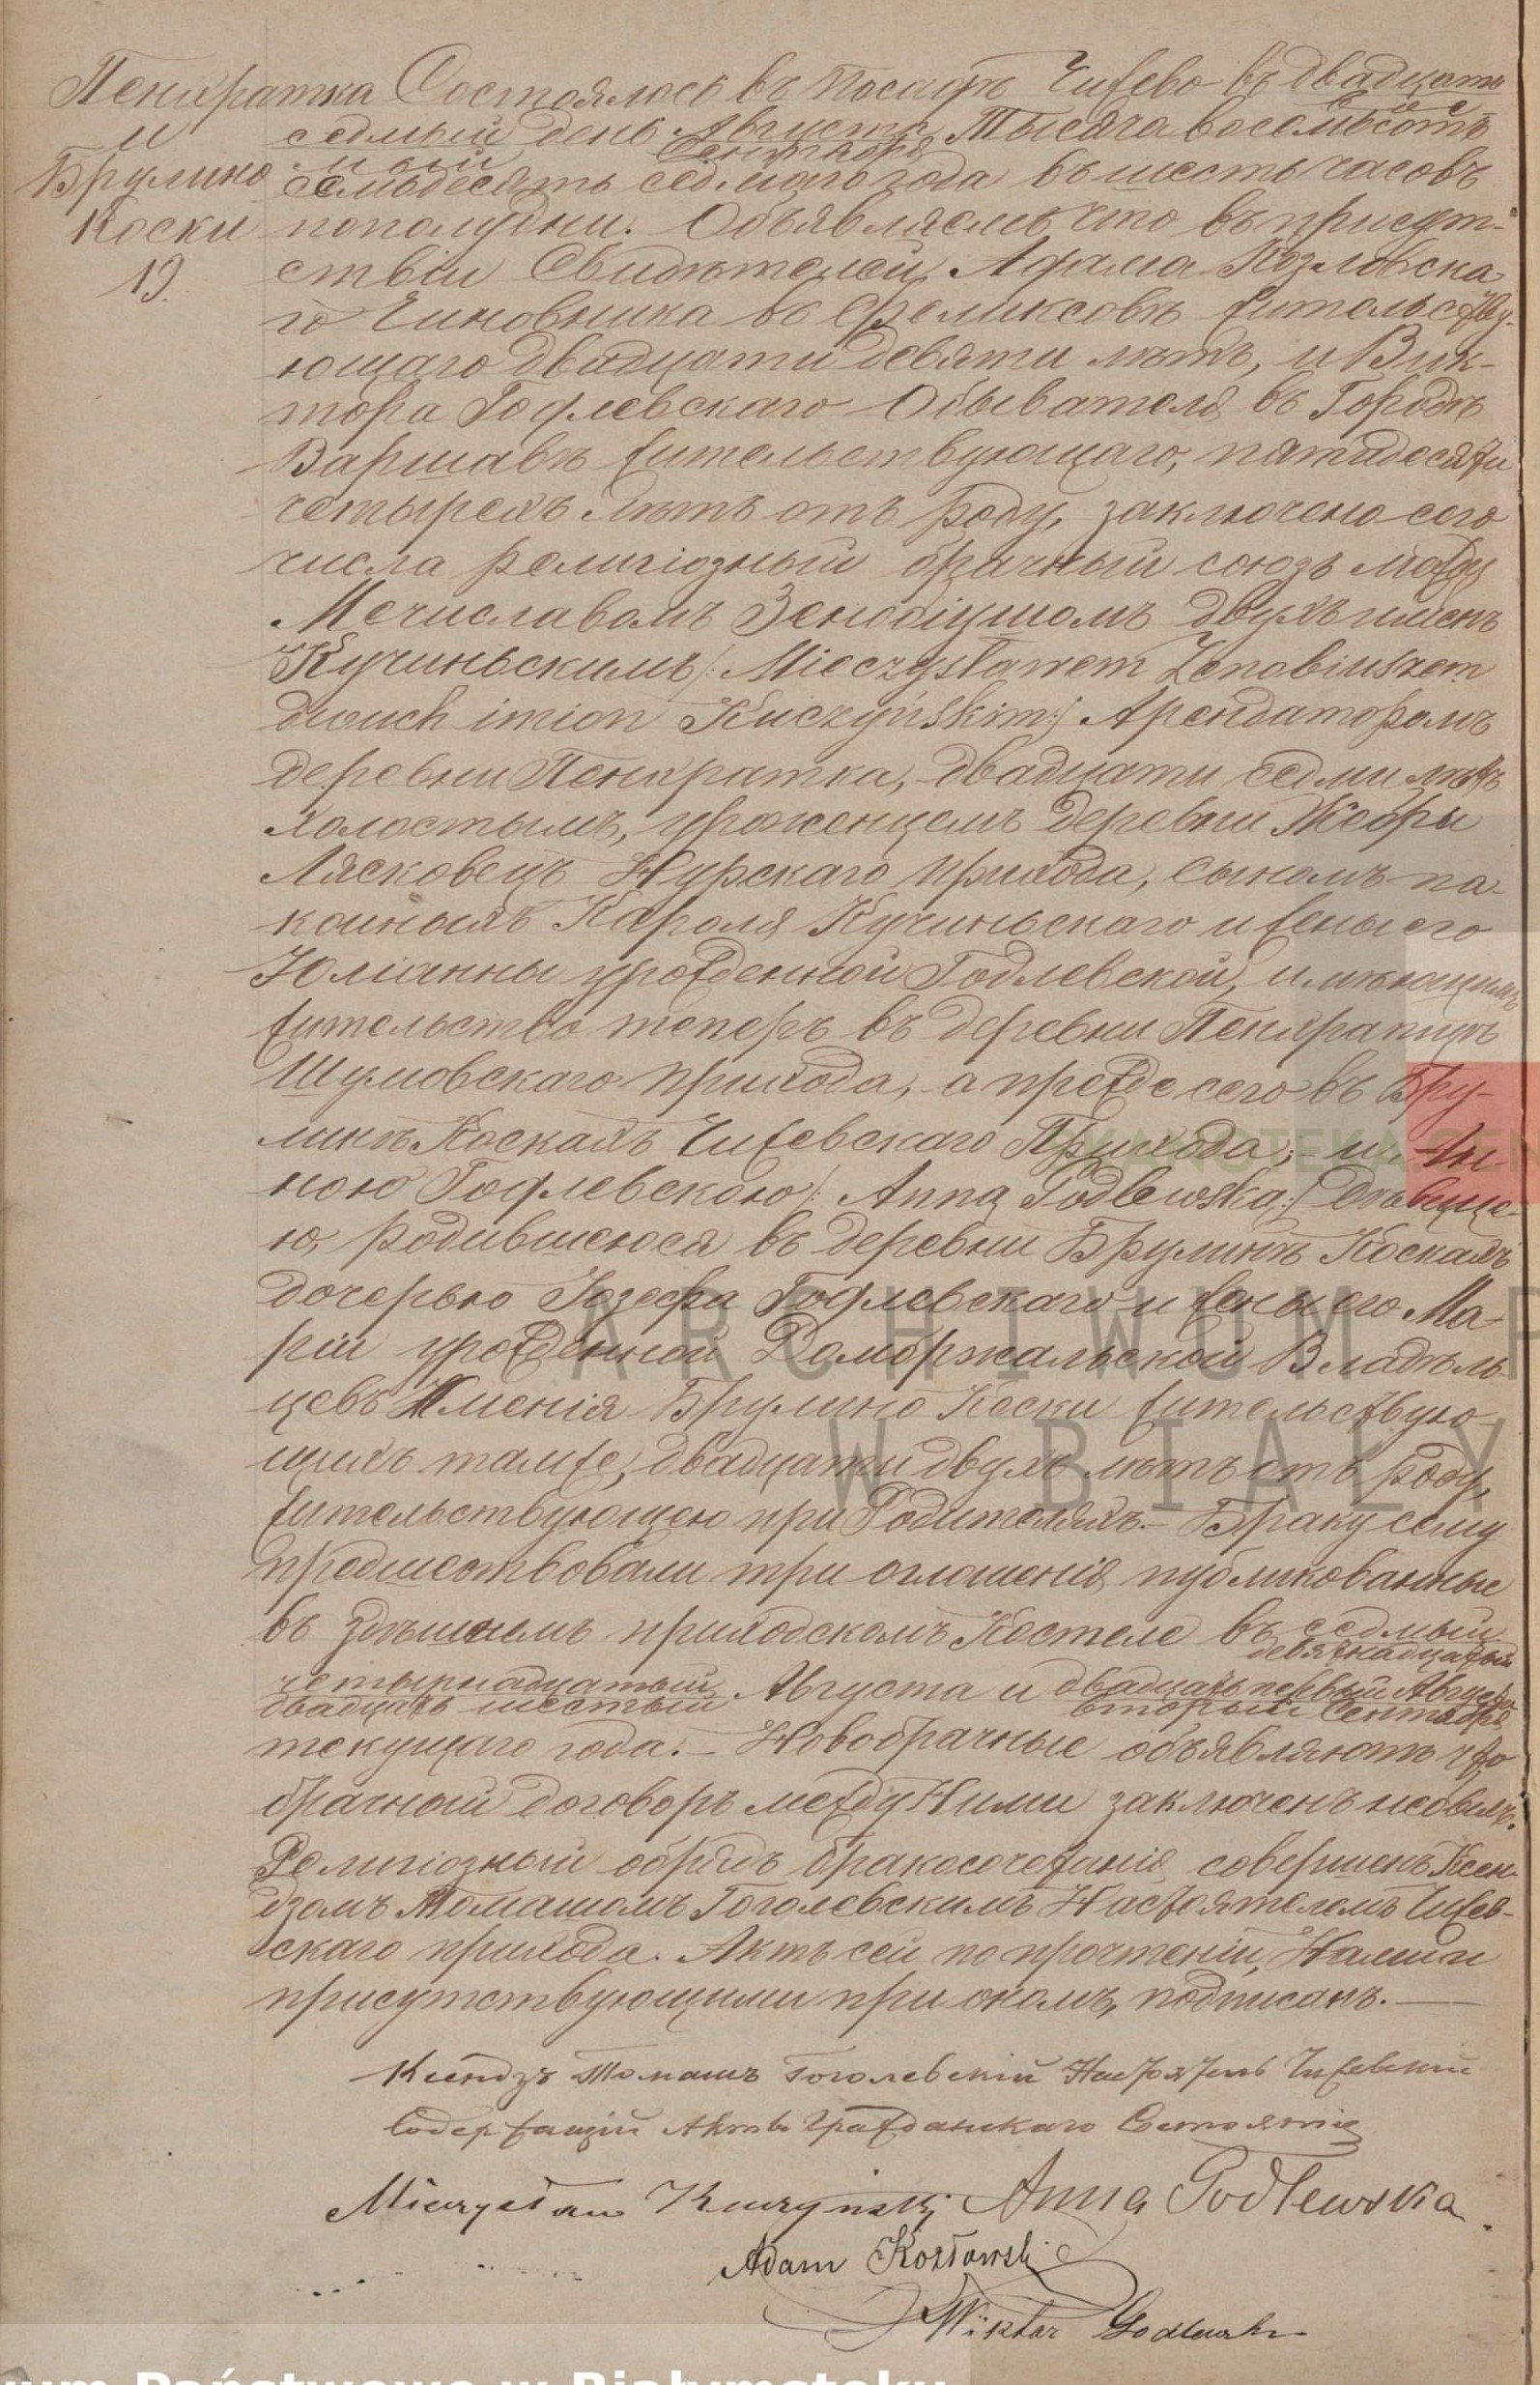 Пенкратка
и
Брулино
Коски
19.
Состоялось въ Посадѣ Чижево въ двадцать
седмый день Августа Тысяча восемьсотъ
Сентября
семьдесять седмаго года въ шесть часовъ
пополудни. Объявляемъ что въ присут-
ствіи Свидѣтелей, Адама Козловска-
го Чиновника въ Феликсовѣ жительству-
ющаго двадцати девяти лѣтъ, и Вик-
тора Годлевскаго Обывателя въ Городѣ
Варшавѣ жительствующаго, пятидесяти
четырехъ лѣтъ отъ роду, заключено сего
числа религіозный брачный союзъ между
Мечиславомъ Зенобіушомъ двухъ именъ
Кучиньскимъ /: Mieczysławem Zenobiuszem
dwuch imion Kuczyńskim :/ Арендаторомъ
деревни Пенкратка, двадцати седми лѣтъ
холостымъ, уроженцемъ деревни Жебры
Лясковецъ Нурскаго прихода, сыномъ по-
койныхъ Кароля Кучиньскаго и жены его
Юліанны урожденной Годлевской, имѣющимъ
жительство теперъ въ деревни Пенкраткѣ
Шумовскаго прихода, а прежде сего въ Бру-
линѣ Коскахъ Чижевскаго Прихода, – и Ан-
ною Годлевскою /: Anną Godlewską :/ Дѣвице-
ю, родившеюся въ деревни Брулинѣ Коскахъ
дочерью Іозефа Годлевскаго и жены его Ма-
ріи урожденной Домбржальской Владѣль-
цевъ Имѣнія Брулино Коски жительствую-
щихъ тамже, двадцати двухъ лѣтъ отъ роду,
жительствующею при Родителяхъ. – Браку сему
предшествовали три оглашенія публикованные
въ здѣшнемъ приходскомъ Костеле въ седмый
девятнадцатый
четырнадцатый Августа и двадцать первый Августа
двадцать шестый второй Сентября
текущаго года. – Новобрачные объявляютъ что
брачный договоръ между Ними заключенъ небылъ.
Религіозный обрядъ бракосочетанія совершенъ Ксен-
дзомъ Томашомъ Гоголевскимъ Настоятелемъ Чижев-
скаго прихода. Актъ сей по прочтеніи, Нами и
присутствующими при ономъ, подписанъ. —
Ксендзъ Томашъ Гоголевскій Настоятель Чижевскій
Содержащій Акты Гражданскаго Состоянія
Mieczysław Kuczyński Anna Godlewska
Adam Kozłowski
Wiktor Godlewski
ARCHIWUM P
W BIAŁY
um Państwowe w Białymstoku